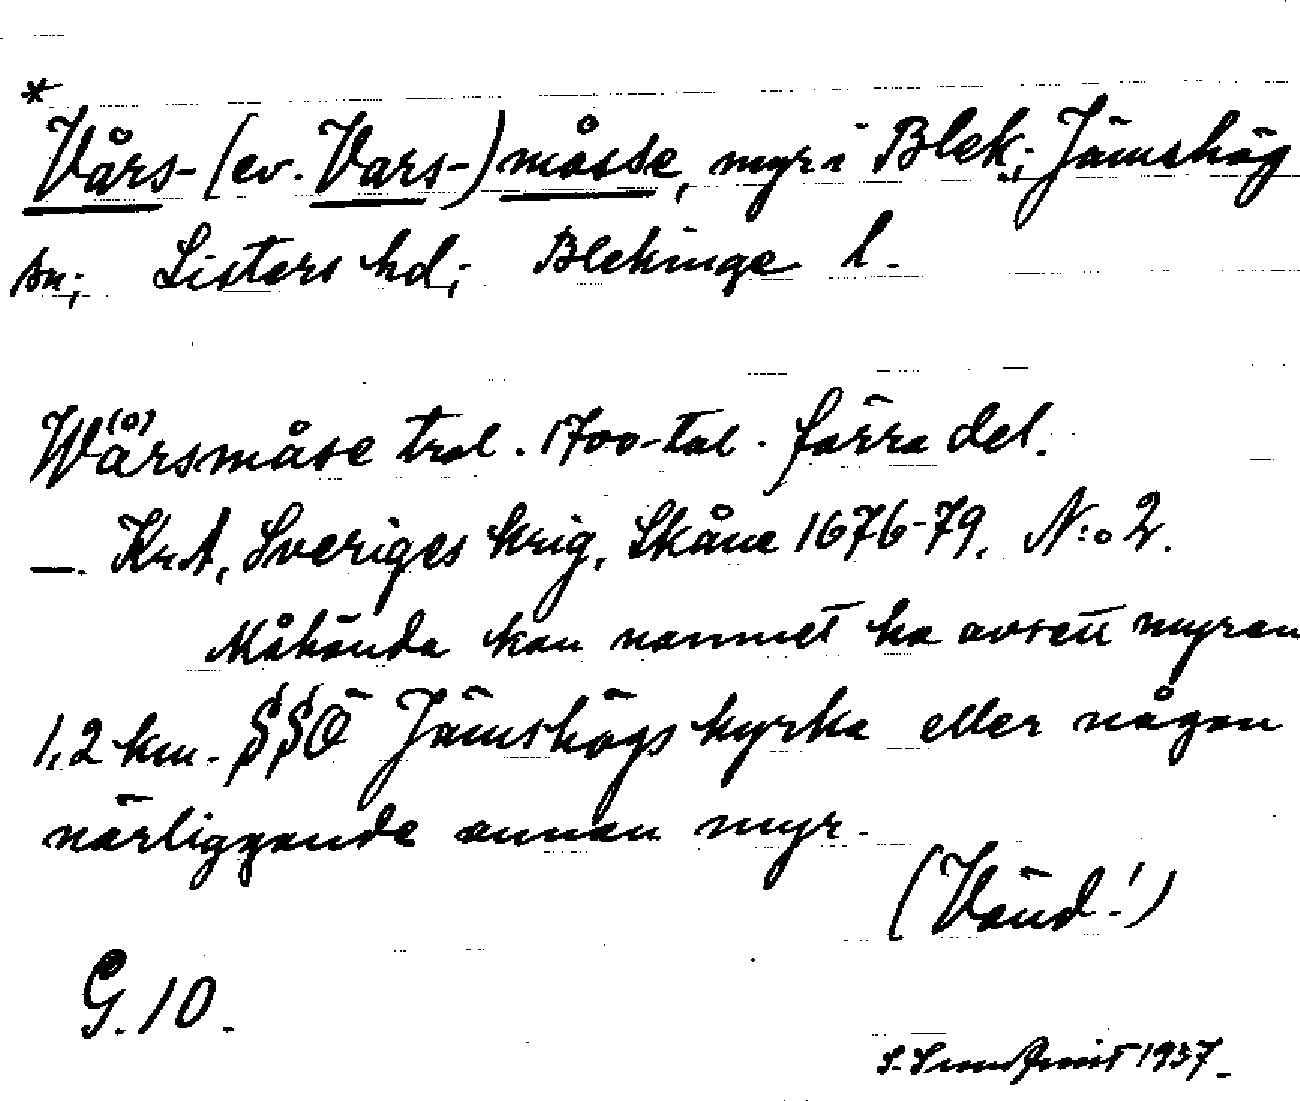 *
Vårs- (ev. Vars-) måsse, myr i Blek; Jämshög
sn; Listers hd; Blekinge l.
(o)
Wårsmåse trol. 1700-tal. förra del.
—. KrA, Sveriges krig, Skåne 1676-79. N:o 2.
Måhända kan namnet ha avsett myren
1,2 km. SSÖ Jämshögs kyrka eller någon
närliggande annan myr.
(Vänd!)
G. 10.
1937.